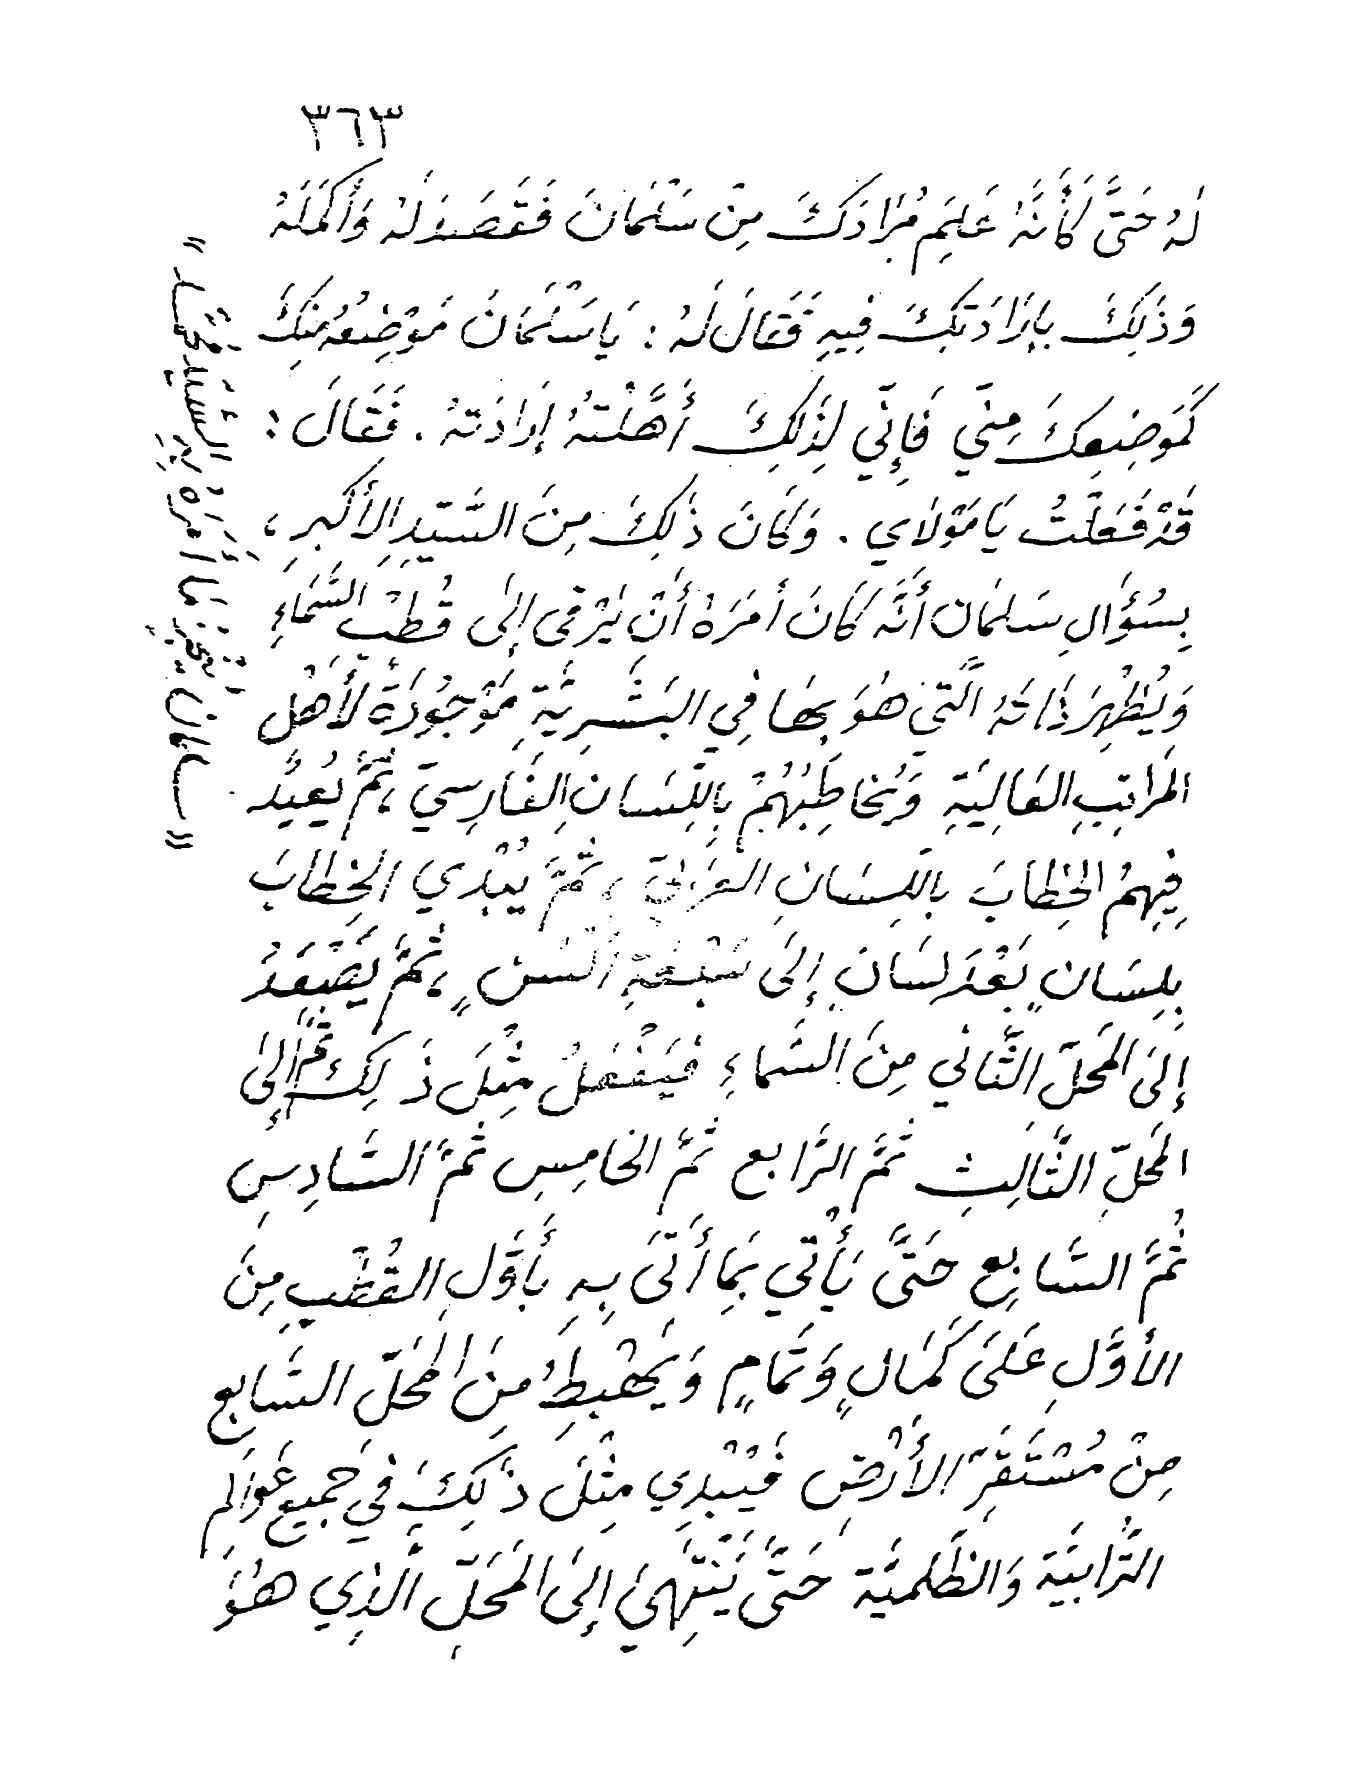 ٣٦٣
لَهُ حَتَّى كَأَنَّهُ عَلِمَ مُرَادَكَ مِنْ سَلْمَانَ فَقَصَدَ لَهُ وَأَكْمَلَهُ
وَذَلِكَ بِإِرَادَتِكَ فِيهِ فَقَالَ لَهُ : يَا سَلْمَانُ مَوْضِعُهُ مِنْكَ
كَمَوْضِعِكَ مِنّي فَإِنّي لِذَلِكَ أَهَّلْتُهُ إِرَادَتهُ . فَقَالَ :
قَدْ فَعَلْتُ يَا مَوْلَاي . وَكَانَ ذَلِكَ مِنَ السَّيّدِ الأَكْبَرِ ،
بِسُؤَالِ سَلمَان أَنَّه كَانَ أَمَرَهُ أَنْ يَرْقى إِلى قُطْبِ السَّمَاءِ
وَيُظْهِرَ ذَاتَهُ الَّتي هُوَ بِهَا فِي البَشَرِيَّةِ مَوْجُودَةٌ لأَهْل
المَرَاتِبِ العَالِيَةِ وَيُخَاطِبُهُمْ بِاللِّسَان الفَارِسيّ ، ثُمَّ يُعِيدُ
فِيهِمُ الخِطَابَ بِاللِّسَانِ العَرَبيّ ، ثُمَّ يُبْدِي الخِطَابَ
بِلِسَانٍ بَعْدَ لِسَانٍ إِلَى سَبْعَةِ أَلْسُنٍ ، ثُمَّ يَصْعَدُ
إِلىَ المَحلّ الثَّانِي مِنَ السَّمَاءِ فَيَفْعَلُ مِثْلَ ذَلِكَ ثُمَّ إِلىَ
المَحلّ الثَّالِث ثُمَّ الرَّابع ثُمَّ الخامِس ثُمَّ السَّادِسِ
ثُمَّ السَّابِع حَتَّى يَأْتي بِمَا أَتَى بِهِ بِأَوَّلِ القُطْبِ مِنَ
الأَوَّلِ عَلىَ كَمَالٍ وَتَمَامٍ وَيَهْبِطُ مِنَ المَحَلّ السَّابِع
مِنْ مُسْتَقَرّ الأَرْضِ فَيُبْدِي مِثْلَ ذَلِكَ فِي جَمِيع عَوَالِم
التُّرَابيَة وَالظُّلميَّة حَتَّى يَنْتَهِيَ إِلىَ المَحَلّ الَّذِي هُوَ
« سلمان يُنْجِزُ مَا أَمَرَهُ بِهِ السَّيد محمَّد »